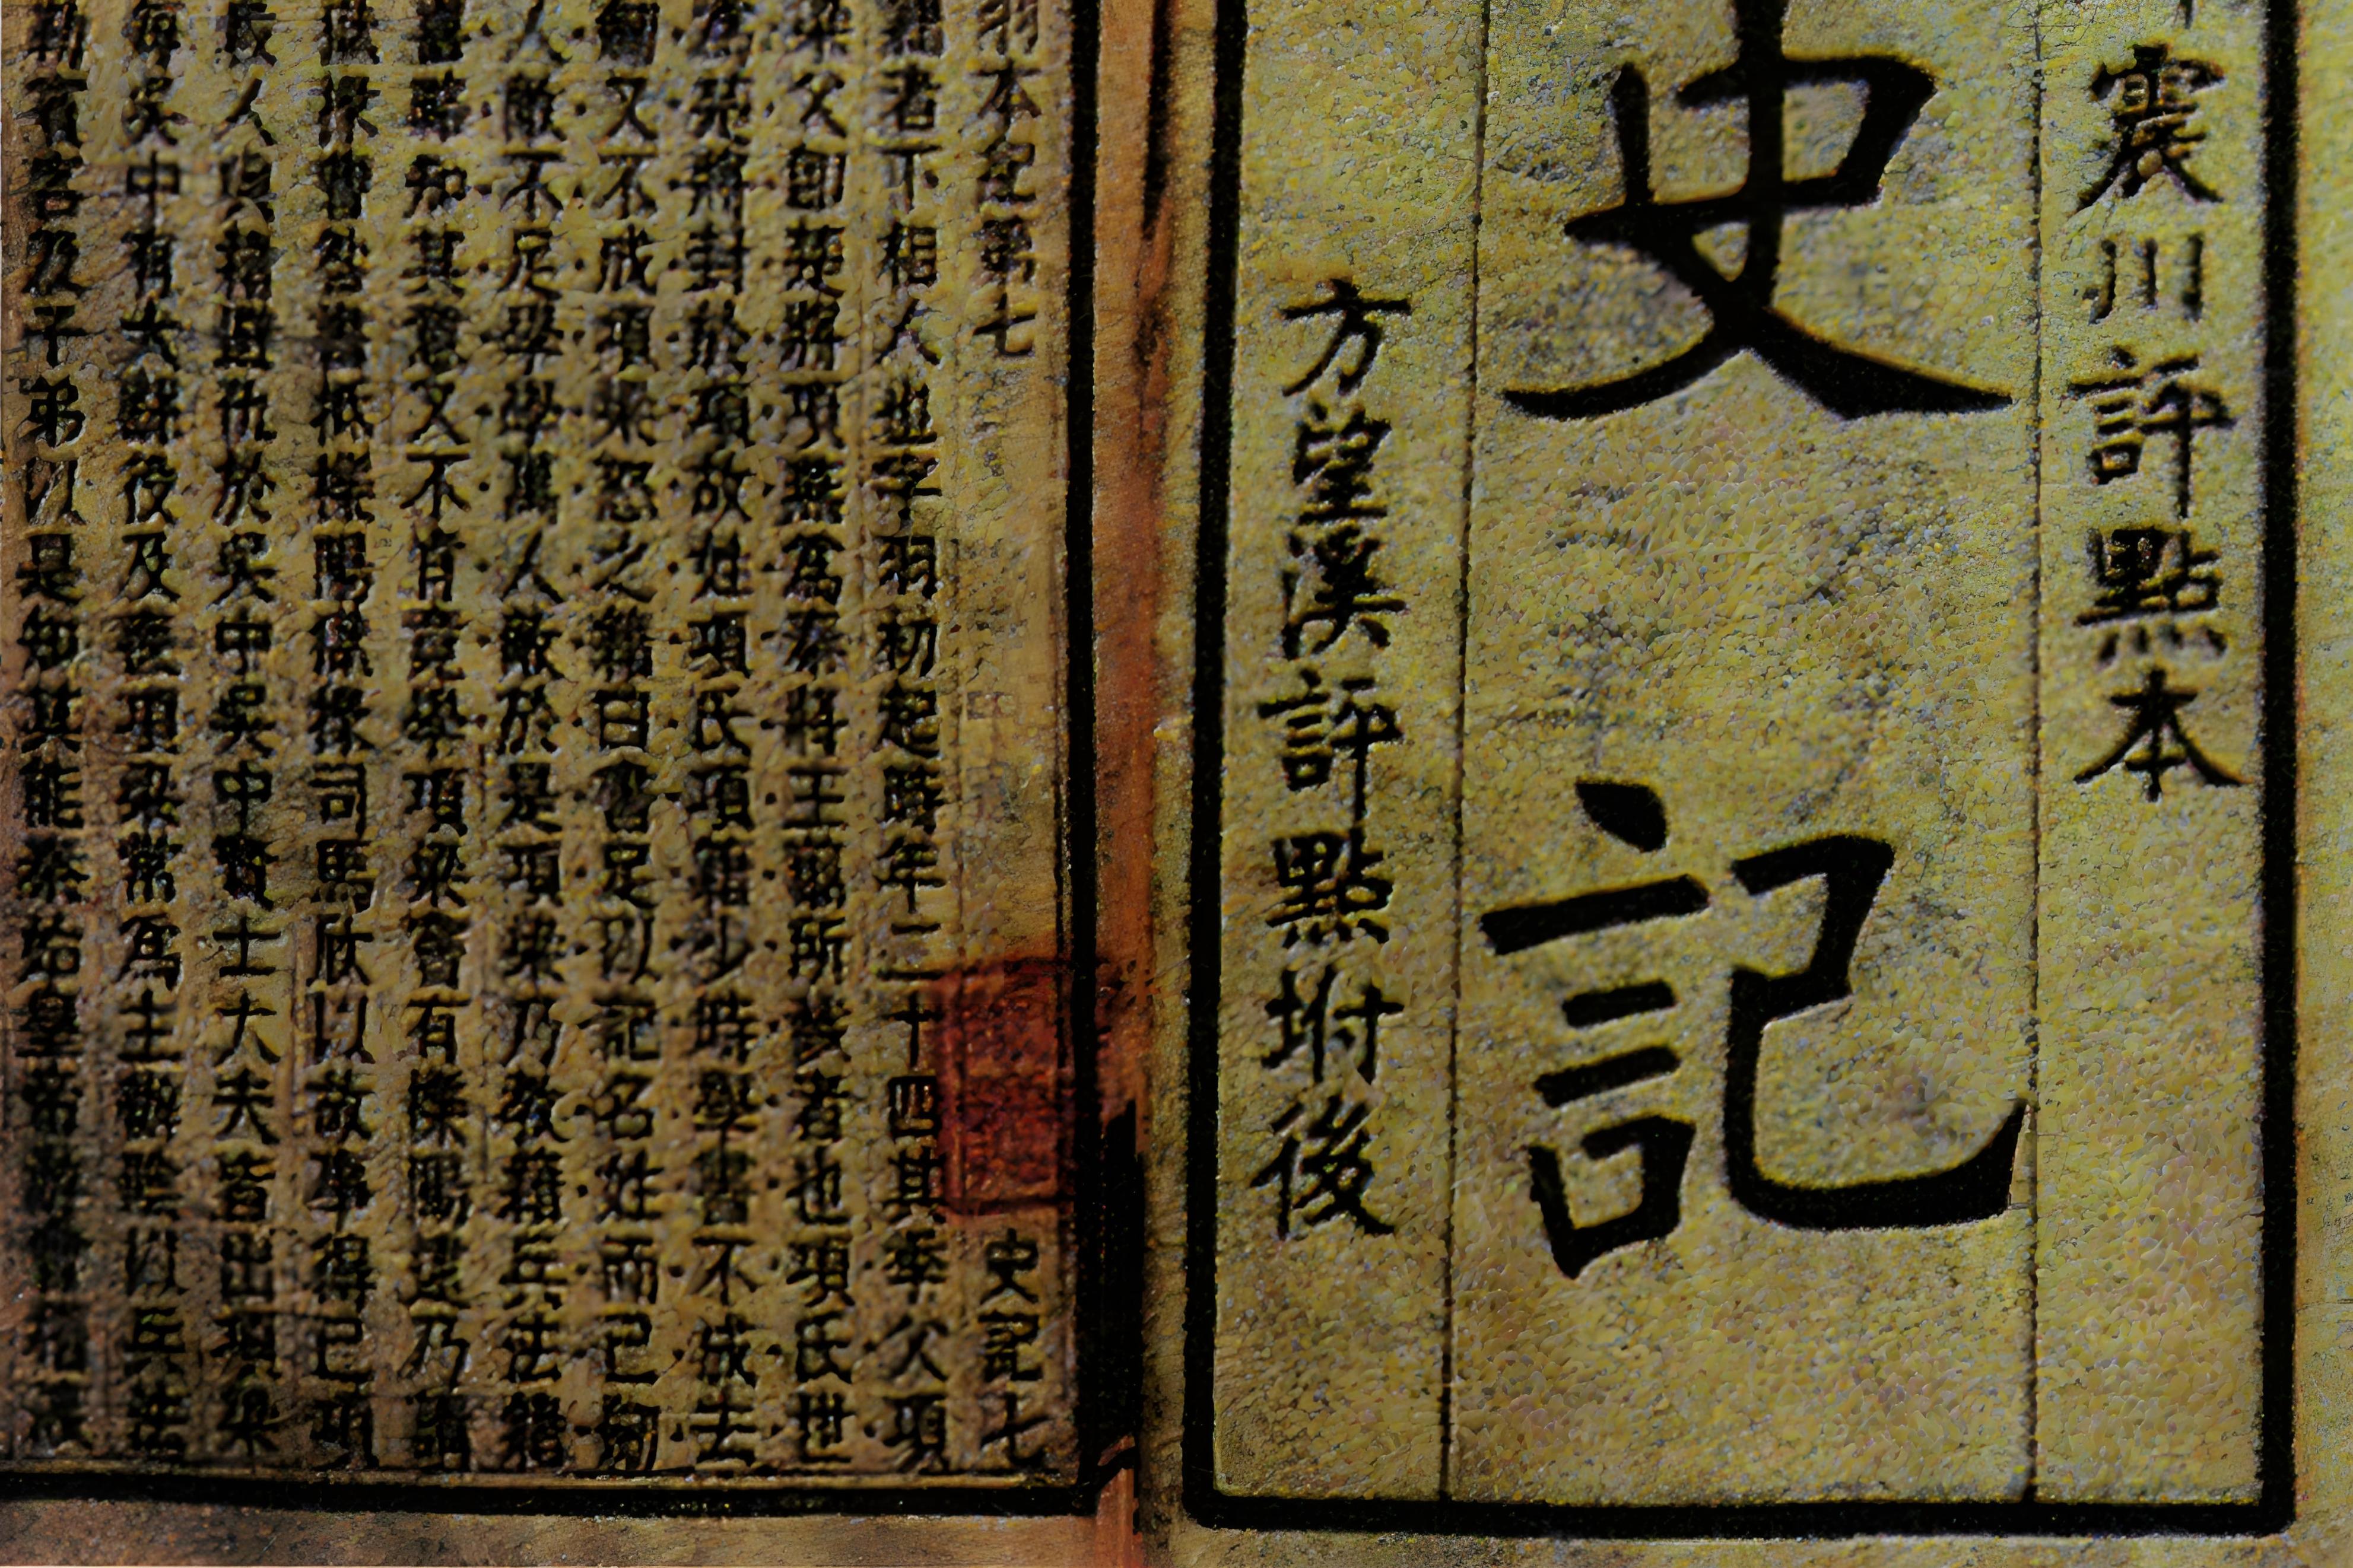 震川評點本
史記
方望溪評點坿後
羽本紀第七 史記七
籍者下相人也字羽初起時年二十四其季父項
梁父即楚將項燕爲秦將王翦所戮者也項氏世
爲楚將封於項故姓項氏項籍少時學書不成去
劍又不成項梁怒之籍曰書足以記名姓而已劍
人敵不足學學萬人敵於是項梁乃教籍兵法籍
喜略知其意又不肯竟學項梁嘗有櫟陽逮乃請
獄掾曹咎書抵櫟陽獄掾司馬欣以故事得已項
殺人與籍避仇於吳中吳中賢士大夫皆出項梁
每吳中有大繇役及喪項梁常爲主辦陰以兵法
勒賓客及子弟以是知其能秦始皇帝游會稽渡